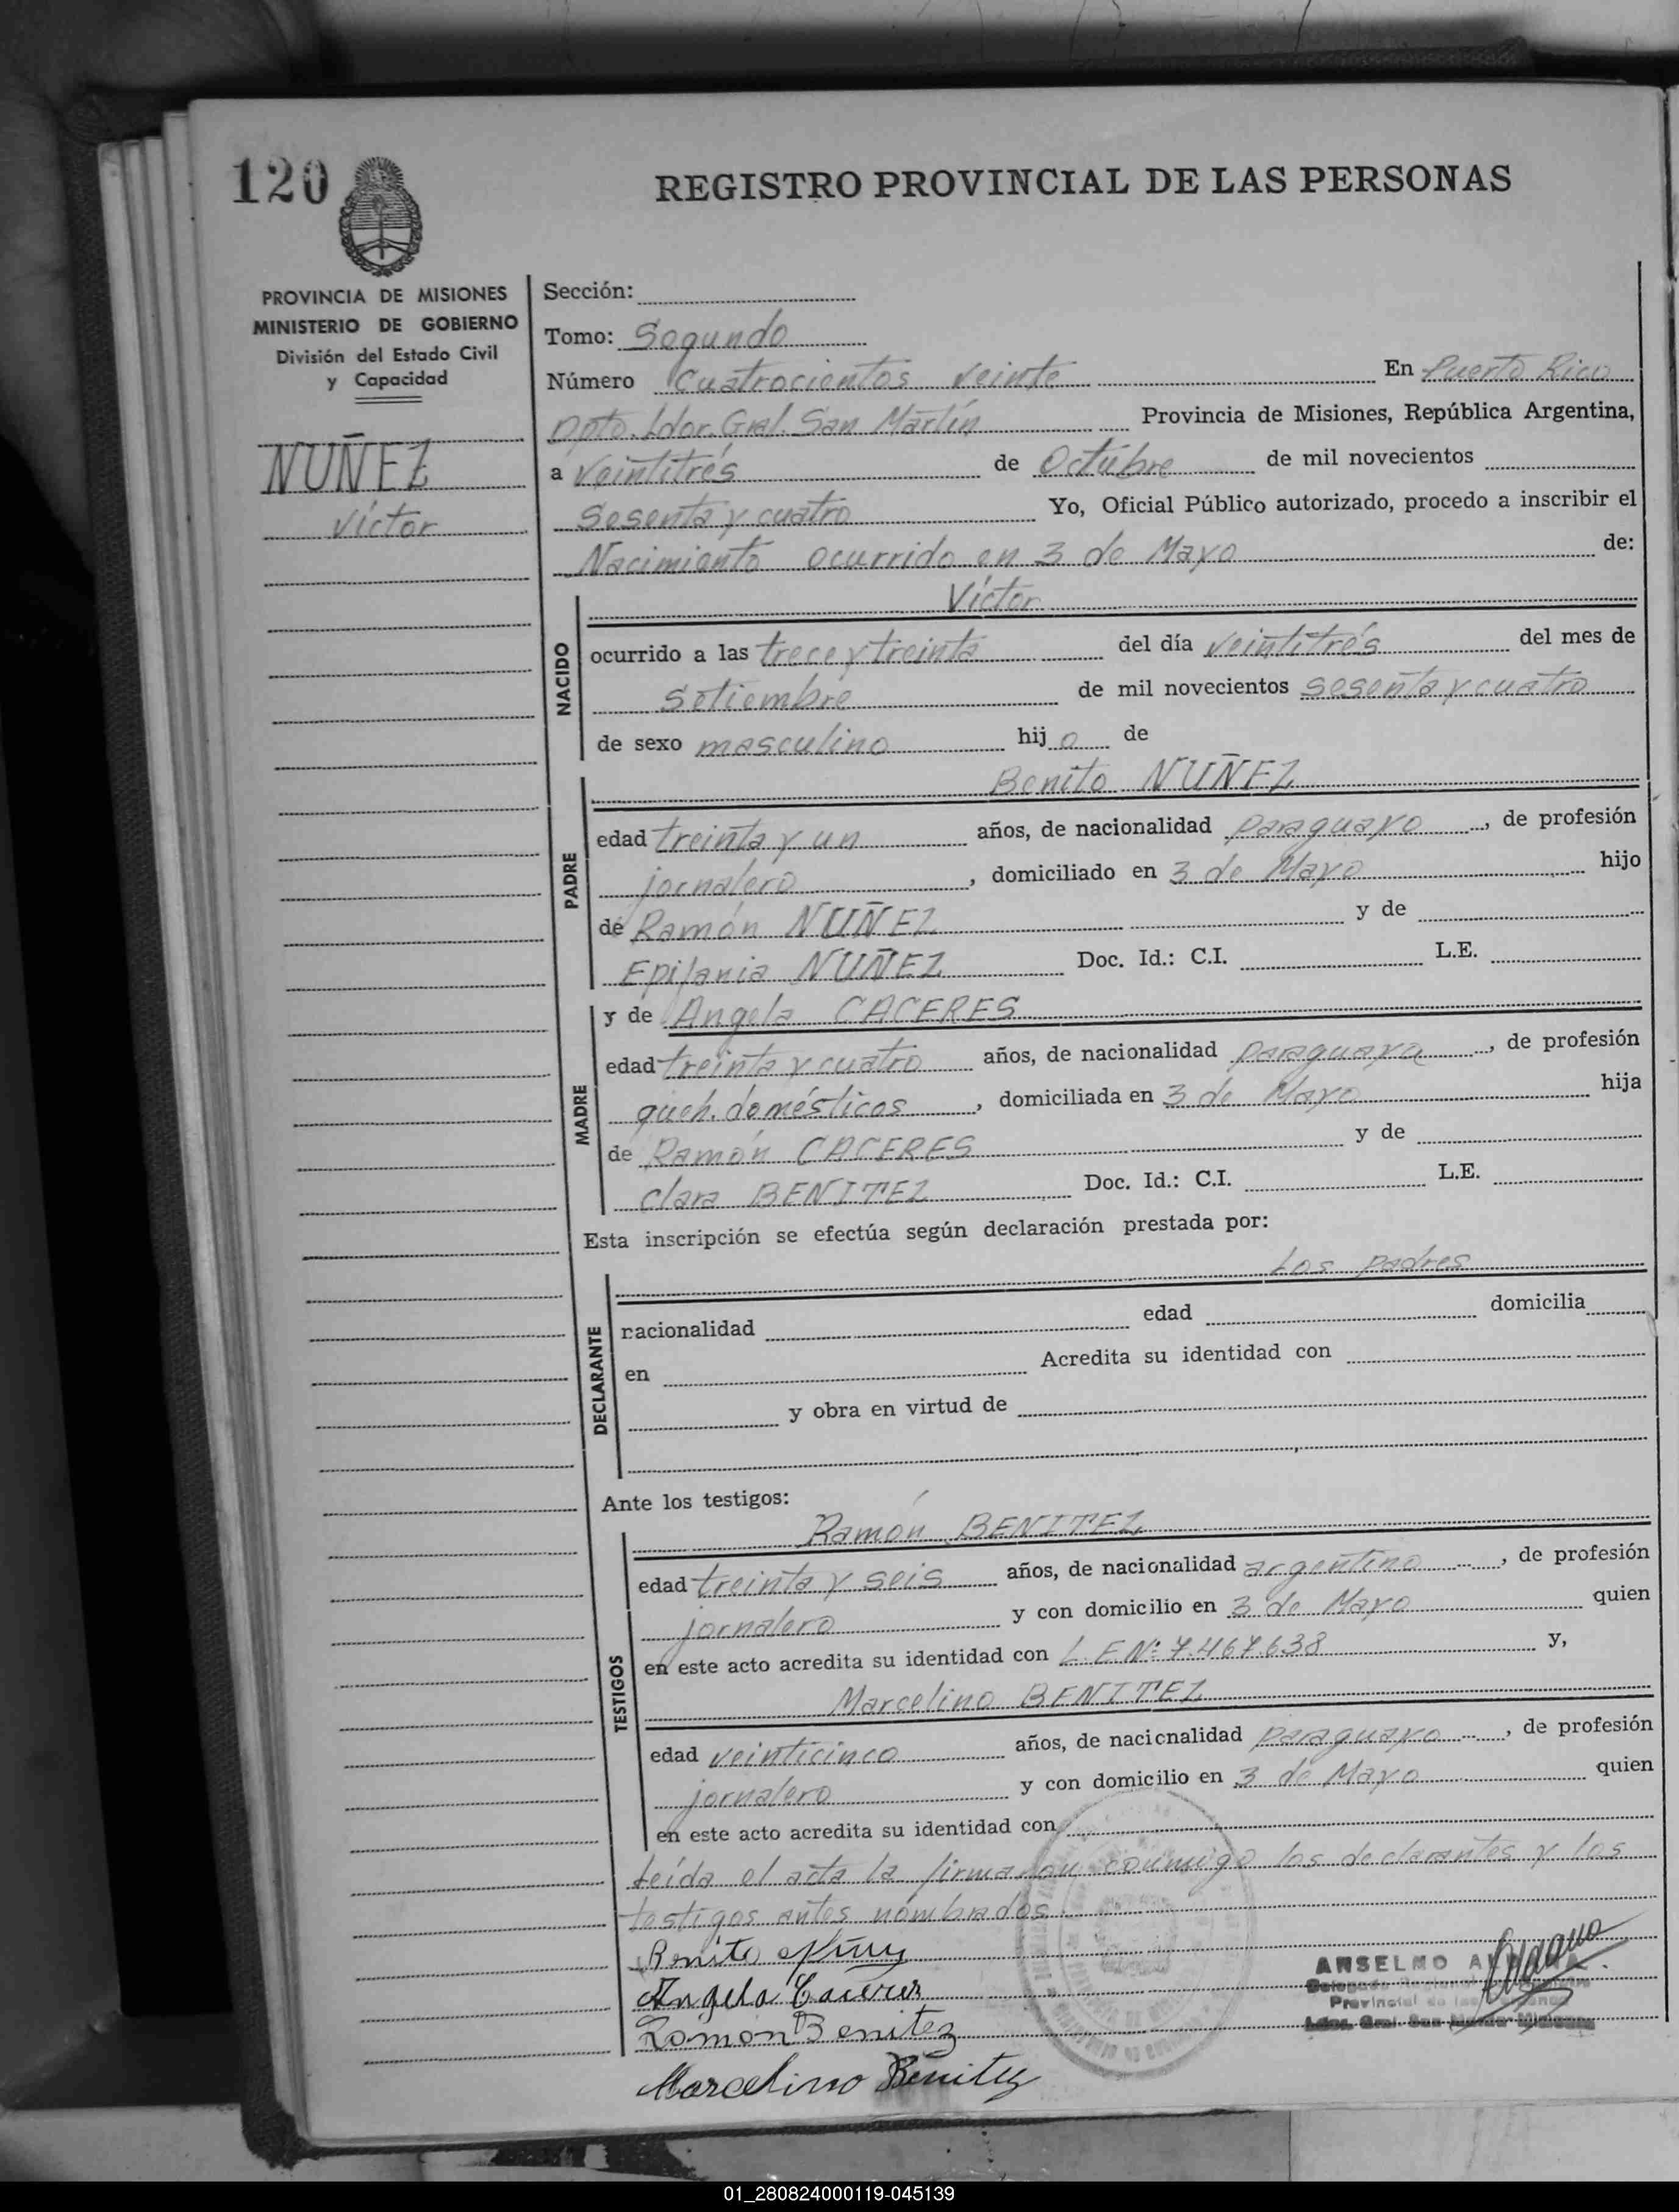 120
REGISTRO PROVINCIAL DE LAS PERSONAS
PROVINCIA DE MISIONES
MINISTERIO DE GOBIERNO
División del Estado Civil
y Capacidad
NUÑEZ
Víctor
Sección:
Tomo: Segundo
Número Cuatrocientos veinte En Puerto Rico
Dpto. Ldor. Gral. San Martín Provincia de Misiones, República Argentina,
a veintitrés de Octubre de mil novecientos
sesenta y cuatro Yo, Oficial Público autorizado, procedo a inscribir el
Nacimiento ocurrido en 3 de Mayo de:
NACIDO
Víctor
ocurrido a las trece y treinta del día veintitrés del mes de
Setiembre de mil novecientos sesenta y cuatro
de sexo masculino hijo de
PADRE
Benito NUÑEZ
edad treinta y un años, de nacionalidad paraguayo, de profesión
jornalero, domiciliado en 3 de Mayo hijo
de Ramón NUÑEZ y de
Epifania NUÑEZ Doc. Id.: C.I. L.E.
MADRE
y de Angela CACERES
edad treinta y cuatro años, de nacionalidad paraguaya, de profesión
queh. domésticos, domiciliada en 3 de Mayo hija
de Ramón CACERES y de
Clara BENITEZ Doc. Id.: C.I. L.E.
Esta inscripción se efectúa según declaración prestada por:
DECLARANTE
Los padres
nacionalidad edad domicilia
en Acredita su identidad con
y obra en virtud de
Ante los testigos:
TESTIGOS
Ramón BENITEZ
edad treinta y seis años, de nacionalidad argentino, de profesión
jornalero y con domicilio en 3 de Mayo quien
en este acto acredita su identidad con L.E Nº: 7.467.638 y,
Marcelino BENITEZ
edad veinticinco años, de nacionalidad paraguayo, de profesión
jornalero y con domicilio en 3 de Mayo quien
en este acto acredita su identidad con
Leída el acta la firmaron conmigo los declarantes y los
testigos antes nombrados.
Benito
Angela Caceres
Ramon Benitez
Marcelino Benitez
ANSELMO
Provincial de las
Ldor. Gral. San Martín Misiones
01_280824000119-045139